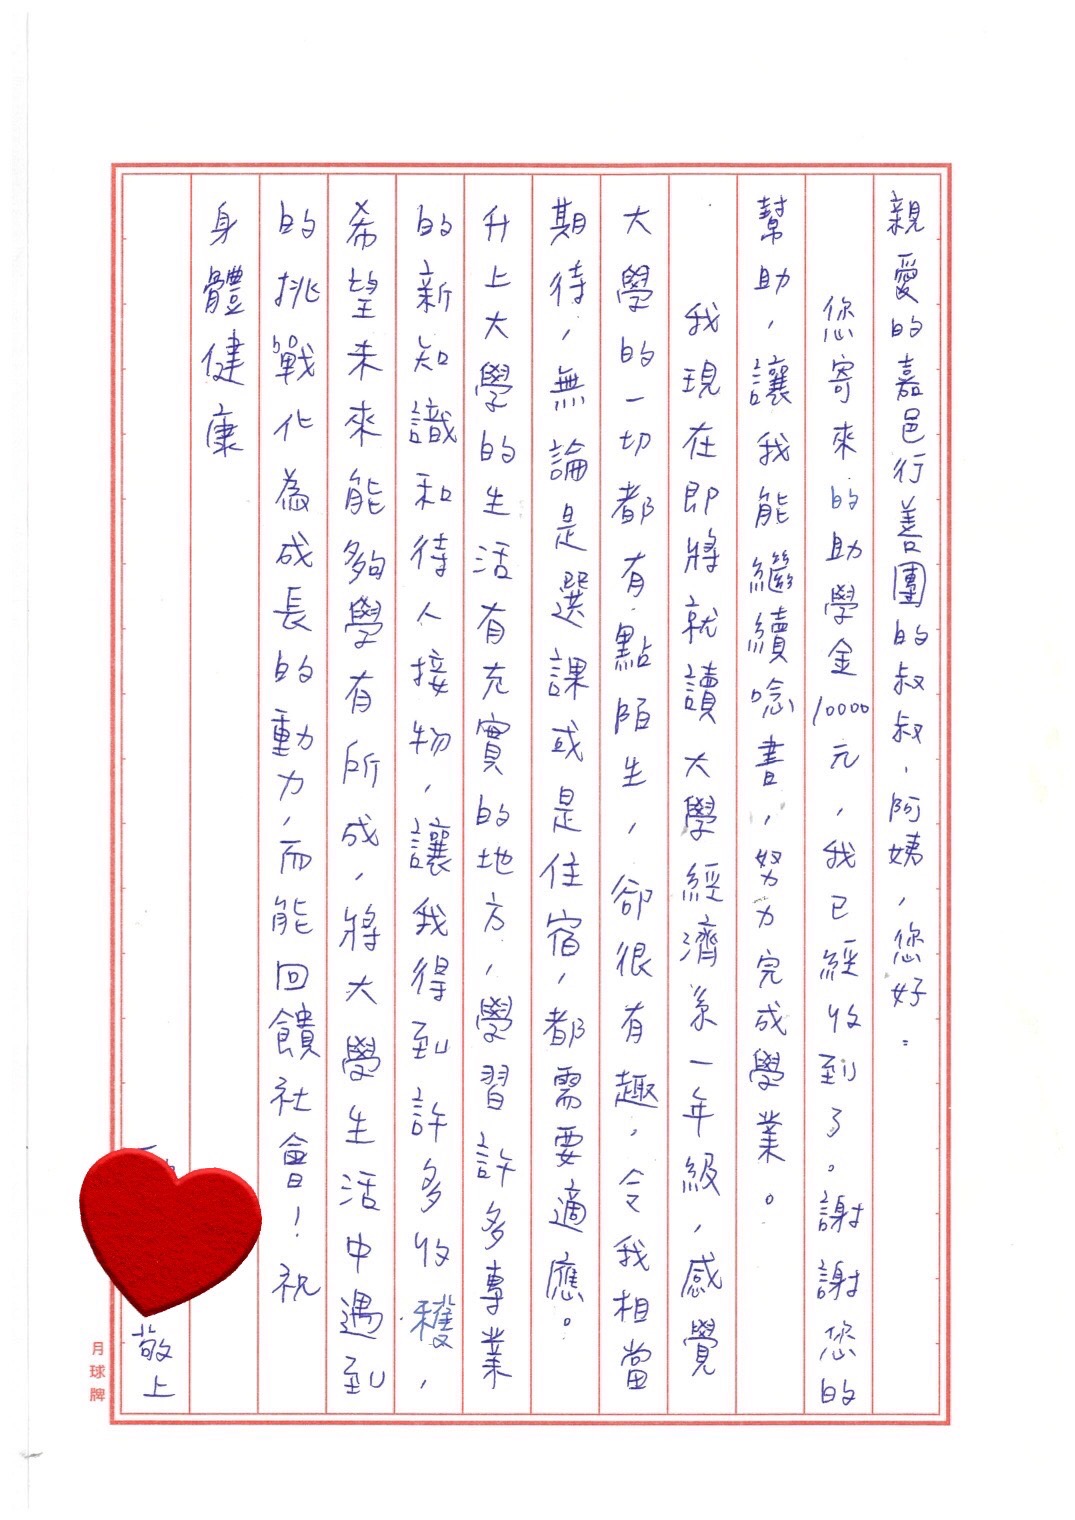 親愛的嘉邑行善團的叔叔、阿姨，您好：
您寄來的助學金10000元，我已經收到了。謝謝您的
幫助，讓我能繼續唸書，努力完成學業。
我現在即將就讀大學經濟系一年級，感覺
大學的一切都有點陌生，卻很有趣，令我相當
期待，無論是選課或是住宿，都需要適應。
升上大學的生活有充實的地方，學習許多專業
的新知識和待人接物，讓我得到許多收穫，
希望未來能夠學有所成，將大學生活中遇到
的挑戰化為成長的動力，而能回饋社會！祝
身體健康
敬上
月球牌